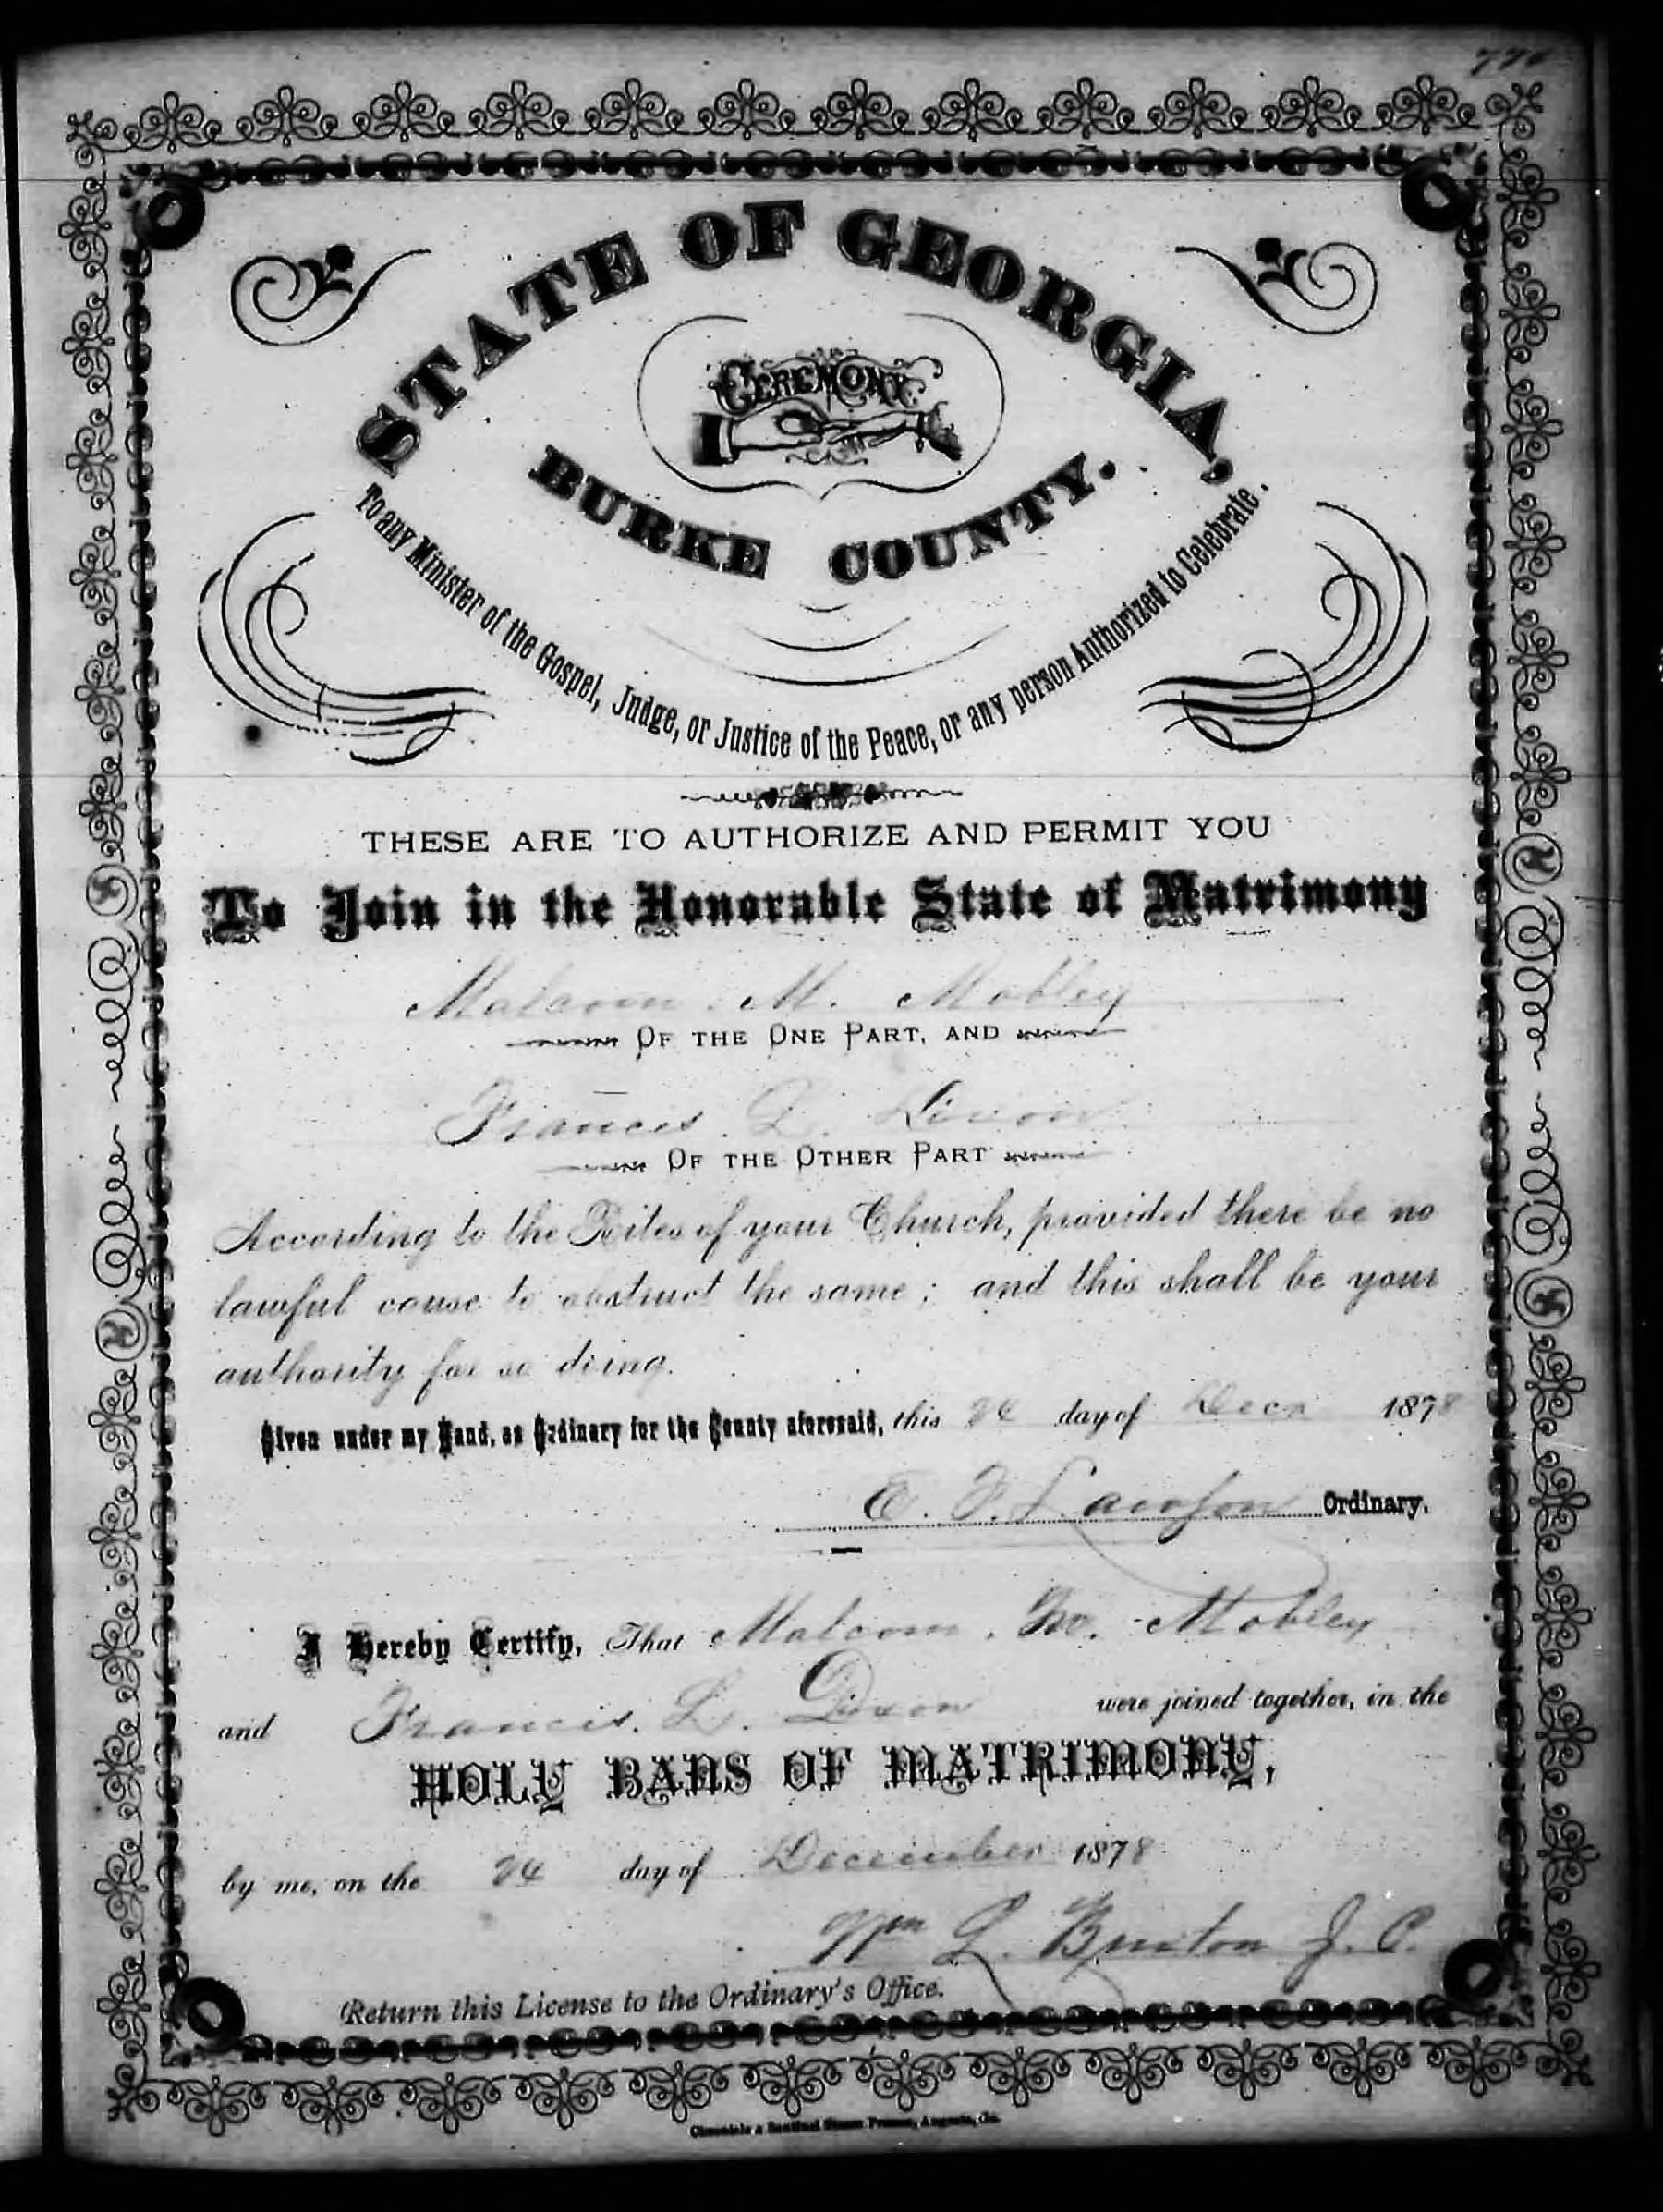 STATE OF GEORGIA,
CEREMONY
BURKE COUNTY.
To any Minister of the Gospel, Judge, or Justice of the Peace, or any person Authorized to Celebrate.
THESE ARE TO AUTHORIZE AND PERMIT YOU
To Join in the Honorable State of Matrimony
Malcom M. Mobley
OF THE ONE PART, AND
Francis L. Dixon
OF THE OTHER PART
According to the Rites of your Church, provided there be no
lawful cause to obstruct the same; and this shall be your
authority for so doing.
Given under my Hand, as Ordinary for the County aforesaid, this 24 day of Decr 1878
E. F. Lawson Ordinary.
I Hereby Certify, That Malcom. M. Mobley
and Francis. L. Dixon were joined together, in the
HOLY BANS OF MATRIMONY,
by me, on the 24 day of December 1878
Wm L. Buxton J. P.
Return this License to the Ordinary's Office.
Chronicle & Sentinel Steam Presses, Augusta, Ga.